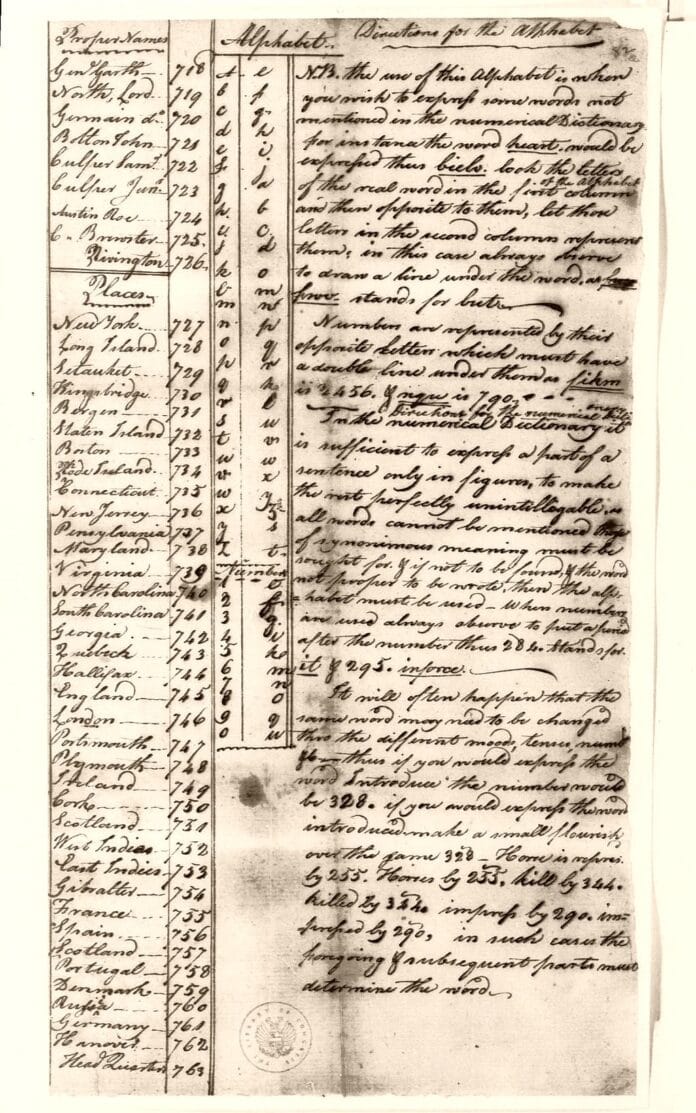 Proper Names
Genl Garth 718
North, Lord 719
Germain do. 720
Bolton John 721
Culper Saml. 722
Culper Junr. 723
Austin Roe 724
C. Brewster 725.
Rivington 726.
Places
New York 727
Long Island 728
Setauket 729
Kingsbridge 730
Bergen 731
Staten Island 732
Boston 733
Rode Island 734
Connecticut 735
New Jersey 736
Pensylvania 737
Maryland 738
Virginia 739
North Carolina 740
South Carolina 741
Georgia 742
Quebeck 743
Hallifax 744
England 745
London 746
Portsmouth 747
Plymouth 748
Ireland 749
Cork 750
Scotland 751
West Indies 752
East Indies 753
Gibralter 754
France 755
Spain 756
Scotland 757
Portugal 758
Denmark 759
Russia 760
Germany 761
Hanover 762
Head Quarters 763
Alphabet
a e
b f
c g
d h
e i
f j
g a
h b
i c
j d
k o
l m
m n
n p
o q
p r
q k
r l
s u
t v
u w
v x
w y
x z
y s
z t
Numbers
1 e
2 f
3 g
4 i
5 k
6 m
7 n
8 o
9 q
0 u
Directions for the Alphabet
N.B. the use of this Alphabet is when
you wish to express some words not
mentioned in the numerical Dictionary
for instance the word heart. would be
expressed thus bielv. look the letters
of the real word in the first column of the Alphabet
and then opposite to them, let those
letters in the second column represent
them; in this case always observe
to draw a line under the word, as
fwv. stands for but.
Numbers are represented by their
opposite letters which must have
a double line under them as fikm
is 2456. & nqu is 790.
Directions for the numerical
In the numerical Dictionary it
is sufficient to express a part of a
sentence only in figures, to make
the rest perfectly unintellegable, as
all words cannot be mentioned those
of synonimous meaning must be
sought for & if not to be found, & the word
not prooper to be wrote, then the alp-
-habet must be used - when numbers
are used always observe to put a period
after the number thus 284. stands for
it & 295. inforce.
It will often happen that the
same word may need to be changed
thro the different moods, tenses, numb
&c - thus if you would express the
word Introduce the number would
be 328. if you would express the word
introduced make a small flourish
over the same 328 - Horse is repres.
by 255. Horses by 255. kill by 344.
killed by 344. impress by 290. im-
pressed by 290, in such cases the
foregoing & subsequent parts must
determine the word.
THE LIBRARY OF CONGRESS